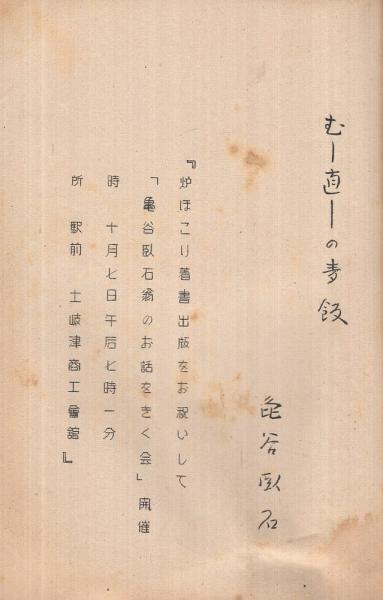 むし直しの麦飯
亀谷臥石
『炉ほこり著書出版をお祝いして
「亀谷臥石翁のお話をきく会」開催
時 十月七日午后七時一分
所 駅前 土岐津商工會館』